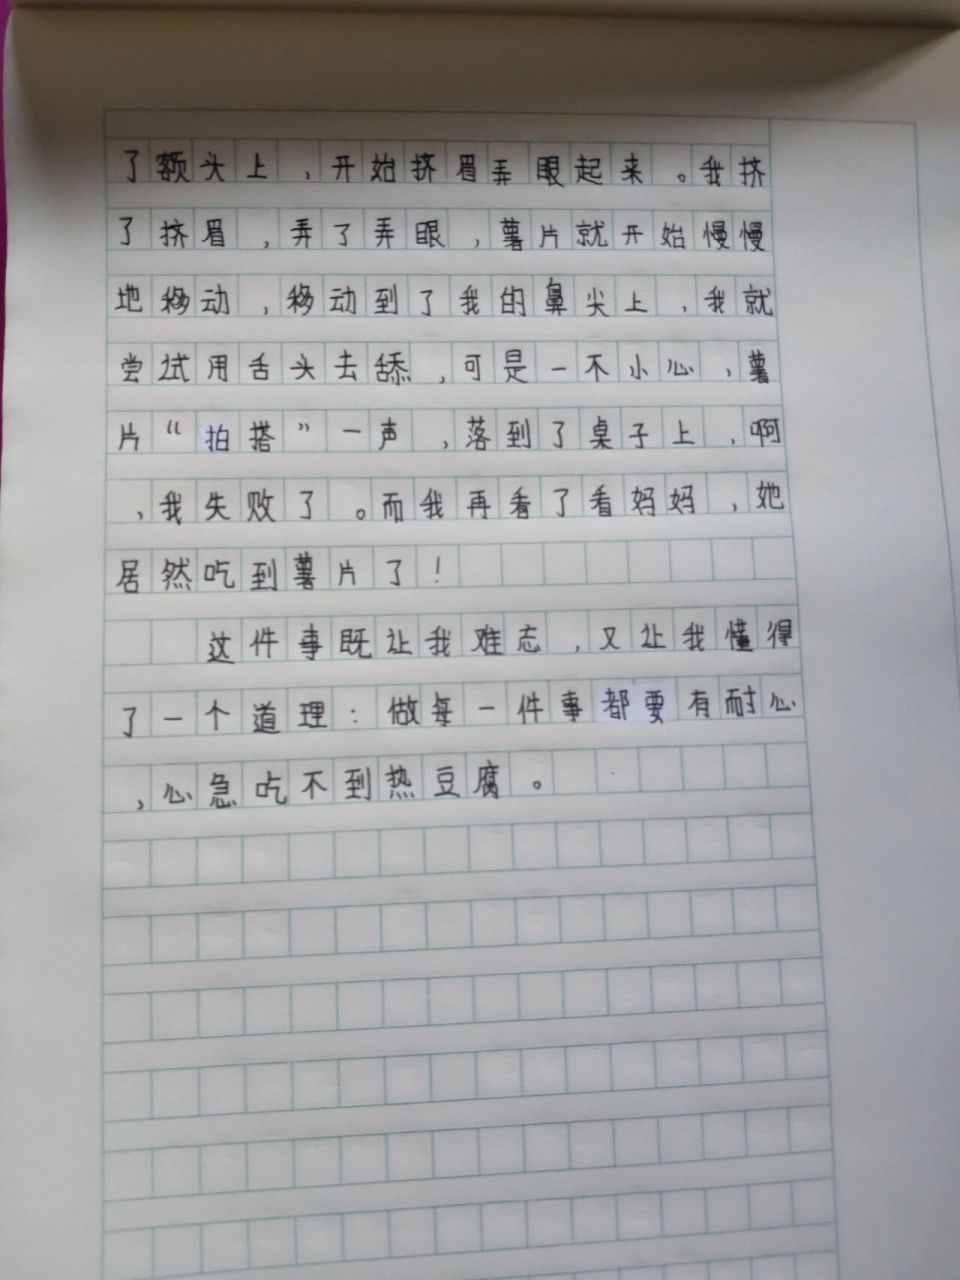 了额头上，开始挤眉弄眼起来。我挤
了挤眉，弄了弄眼，薯片就开始慢慢
地移动，移动到了我的鼻尖上，我就
尝试用舌头去舔，可是一不小心，薯
片“拍搭”一声，落到了桌子上，啊
，我失败了。而我再看了看妈妈，她
居然吃到薯片了！
这件事既让我难忘，又让我懂得
了一个道理：做每一件事都要有耐心
，心急吃不到热豆腐。